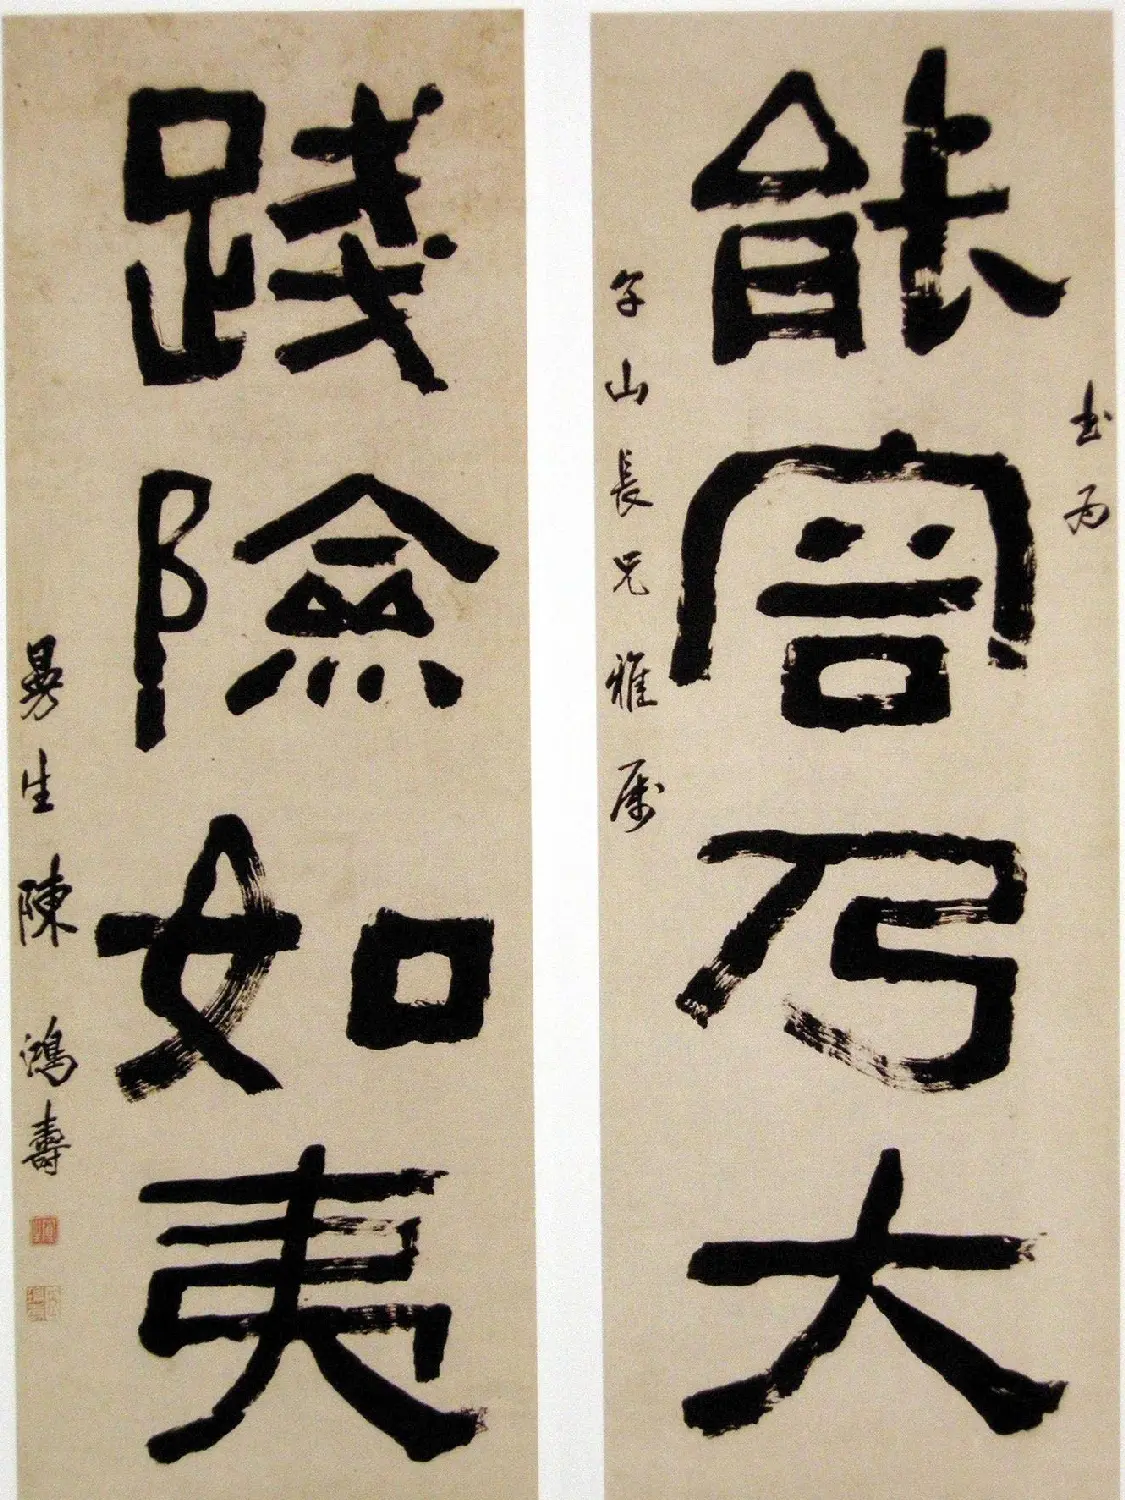 書為
能容乃大
山長兄雅屬
踐險如夷
曼生陳鴻壽